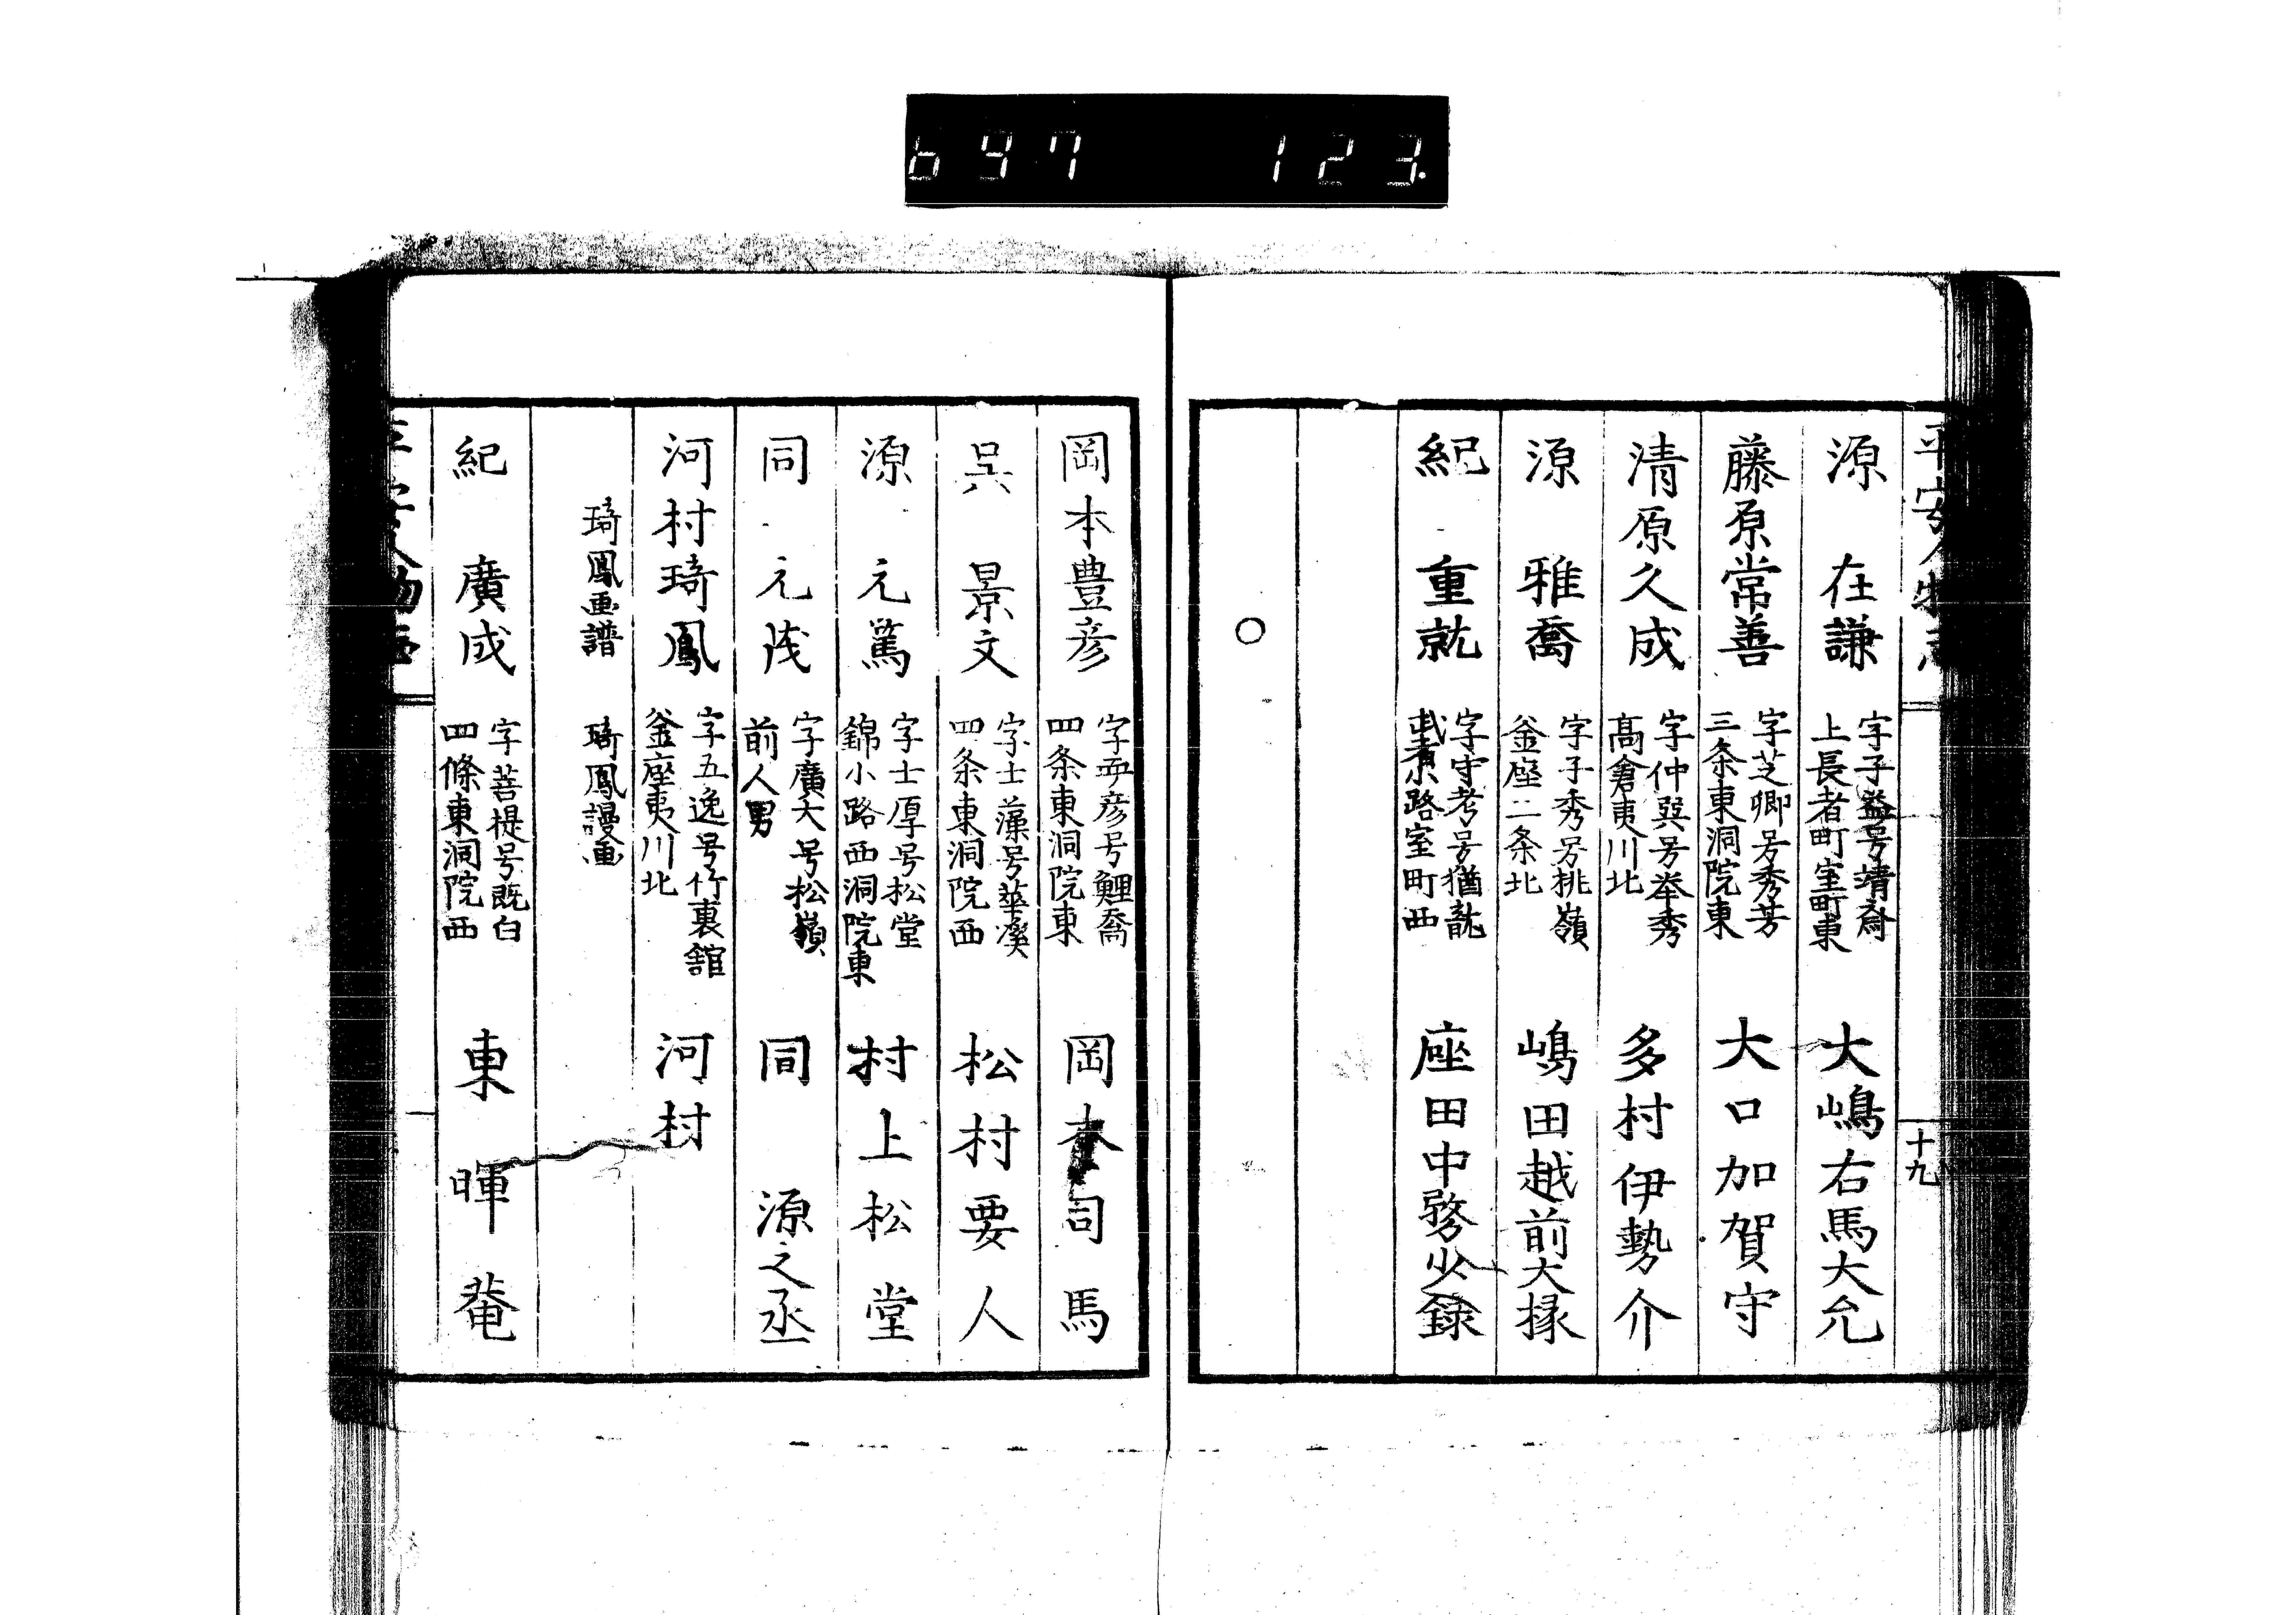 697 123
平安人物志
十九
源 在謙 字子益号靖斎 上長者町室町東 大嶋右馬大允
藤原常善 字芝卿号秀芳 三条東洞院東 大口加賀守
清原久成 字仲巽号挙秀 髙倉夷川北 多村伊勢介
源 雅喬 字子秀号桃嶺 釜座二条北 嶋田越前大掾
紀 重就 字守考号猶龍 小路室町西 座田中務少録
○
岡本豊彦 字彦号鯉喬 四条東洞院東 岡本司馬
呉 景文 字士藻号華溪 四条東洞院西 松村要人
源 元篤 字士厚号松堂 錦小路西洞院東 村上松堂
同 元茂 字廣大号松嶺 前人男 同 源之丞
河村琦鳳 字五逸号竹裏舘 釜座夷川北 河村
琦鳳画譜 琦鳳謾画
紀 廣成 字菩提号既白 四條東洞院西 東 暉菴